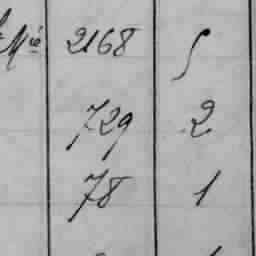 Mié 2168 S
729 2
78 1